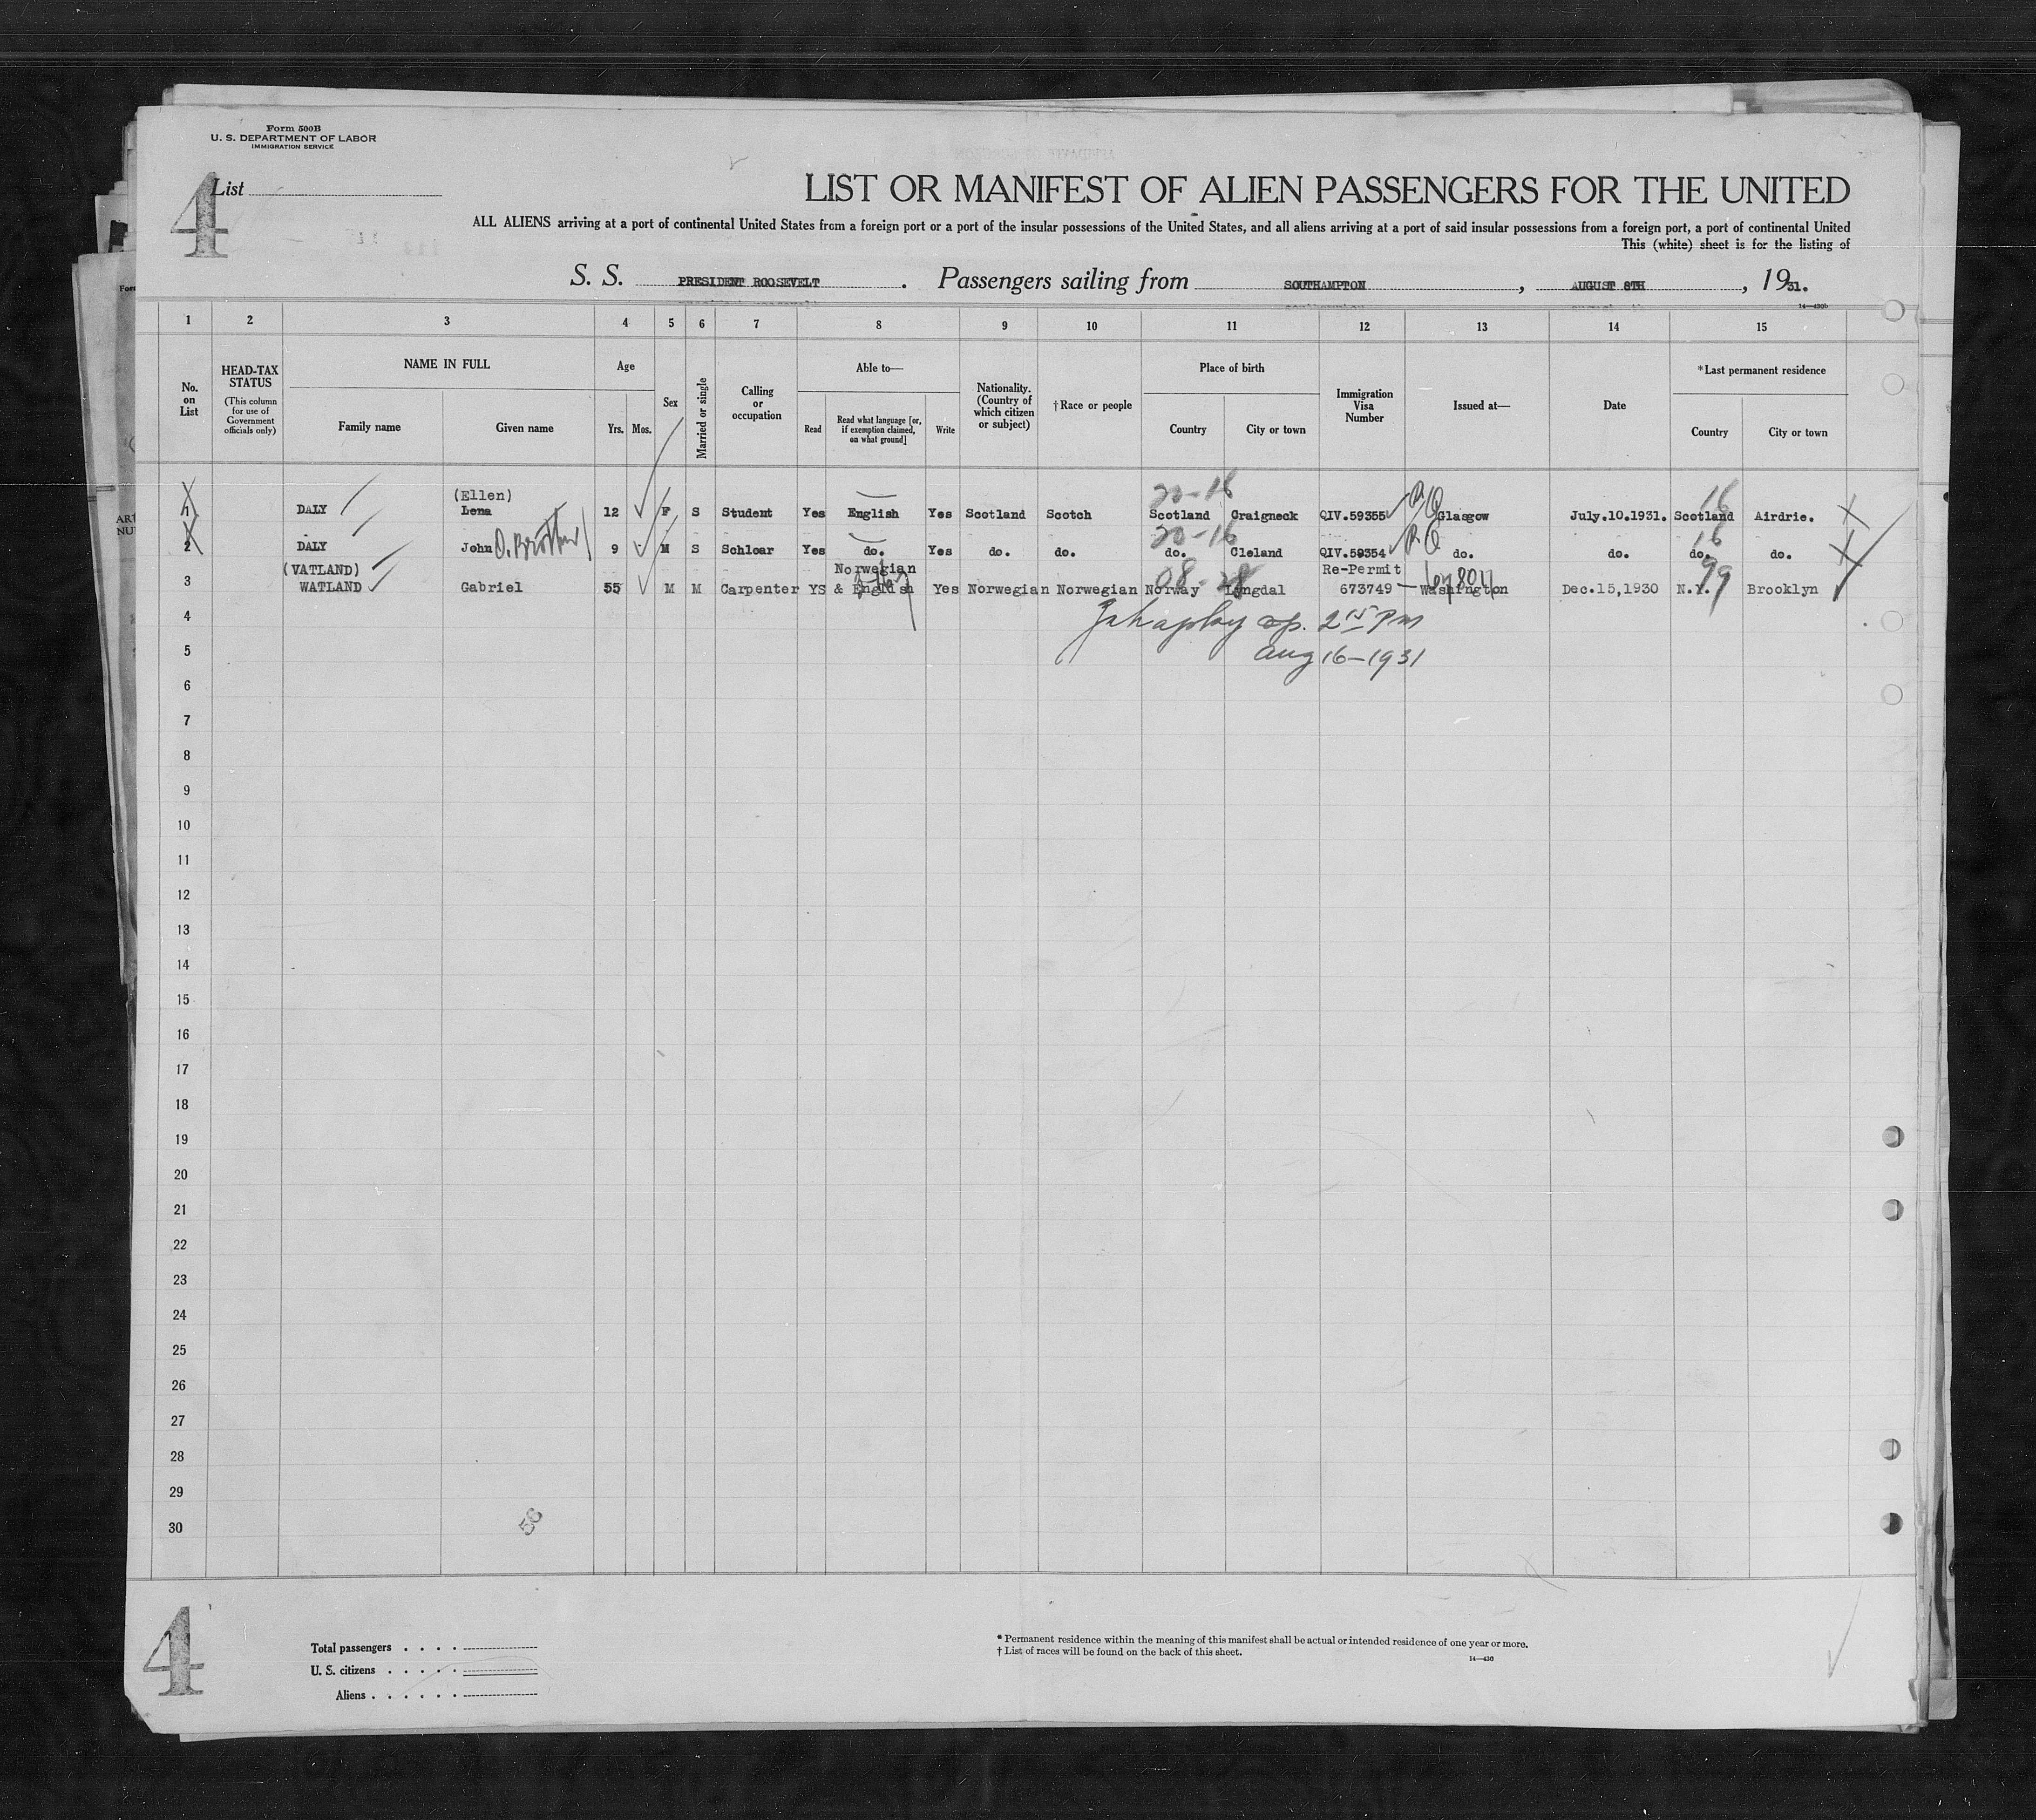 Form 500B
U. S. DEPARTMENT OF LABOR
IMMIGRATION SERVICE
4
List
LIST OR MANIFEST OF ALIEN PASSENGERS FOR THE UNITED
ALL ALIENS arriving at a port of continental United States from a foreign port or a port of the insular possessions of the United States, and all aliens arriving at a port of said insular possessions from a foreign port, a port of continental United
This (white) sheet is for the listing of
S. S. PRESIDENT ROOSEVELT. Passengers sailing from SOUTHAMPTON, AUGUST 8TH, 1931.
14—430b
1 2 3 4 5 6 7 8 9 10 11 12 13 14 15
No. on List
HEAD-TAX STATUS
(This column for use of Government officials only)
NAME IN FULL
Family name
Given name
Age
Yrs. Mos.
Sex
Married or single
Calling or occupation
Able to—
Read
Read what language [or, if exemption claimed, on what ground]
Write
Nationality. (Country of which citizen or subject)
†Race or people
Place of birth
Country
City or town
Immigration Visa Number
Issued at—
Date
*Last permanent residence
Country
City or town
(Ellen) 20-16 16
1 DALY Lena 12 F S Student Yes English Yes Scotland Scotch Scotland Craigneck QIV.59355 Glasgow July.10.1931. Scotland Airdrie.
20-16 16
2 DALY John O. Brother 9 M S Schloar Yes do. Yes do. do. do. Cleland QIV.59354 do. do. do. do.
(VATLAND) Norwegian 08-28 Re-Permit 99
3 WATLAND Gabriel 55 M M Carpenter YS & English Yes Norwegian Norwegian Norway Lyngdal 673749 Washington Dec.15,1930 N.Y. Brooklyn
4 2 15 PM
5 Aug 16-1931
6
7
8
9
10
11
12
13
14
15
16
17
18
19
20
21
22
23
24
25
26
27
28
29
30
58
4
Total passengers
U. S. citizens
Aliens
* Permanent residence within the meaning of this manifest shall be actual or intended residence of one year or more.
† List of races will be found on the back of this sheet.
14—430